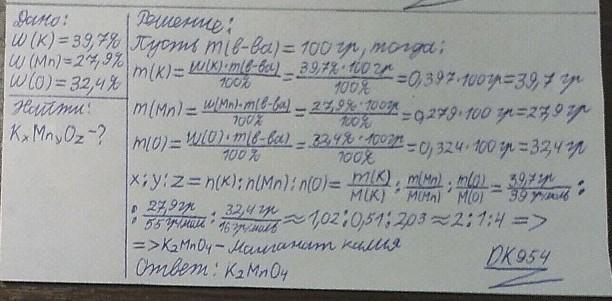 Дано:
W(K)=39,7%
W(Mn)=27,9%
W(O)=32,4%
Найти:
KxMnyOz-?
Решение:
Пусть m(в-ва)=100гр, тогда:
m(K)=W(K)·m(в-ва)/100%=39,7%·100гр/100%=0,397·100гр=39,7 гр
m(Mn)=W(Mn)·m(в-ва)/100%=27,9%·100гр/100%=0,279·100гр=27,9гр
m(O)=W(O)·m(в-ва)/100%=32,4%·100гр/100%=0,324·100гр=32,4гр
x:y:z=n(K):n(Mn):n(O)=m(K)/M(K):m(Mn)/M(Mn):m(O)/M(O)=39,7гр/39гр/моль:
:27,9гр/55гр/моль:32,4гр/16гр/моль≈1,02:0,51:2,03≈2:1:4=>
=>K2MnO4-манганат калия
Ответ: K2MnO4
DK954